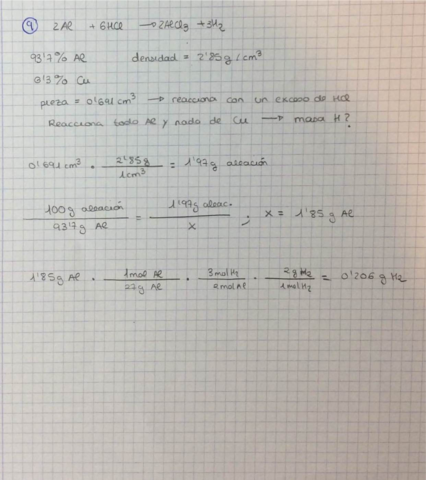 9 2Al + 6HCl → 2AlCl3 + 3H2
93'7% Al densidad = 2'85g/cm3
6'3% Cu
pieza = 0'691 cm3 → reacciona con un exceso de HCl
Reacciona todo Al y nada de Cu → masa H?
0'691cm3 · 2'85g / 1cm3 = 1'97g aleación
100g aleación / 93'7g Al = 1'97g aleac. / x ; x = 1'85 g Al
1'85g Al · 1mol Al / 27g Al · 3molH2 / 2mol Al · 2g H2 / 1molH2 = 0'206 g H2